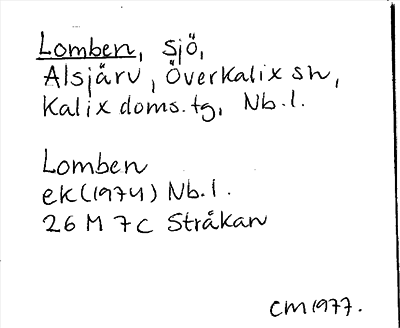 Lomben, sjö,
Alsjärv, Överkalix sn,
Kalix doms.tg, Nb.l.
Lomben
ek(1974) Nb.l.
26 M 7c Stråkan
CM1977.